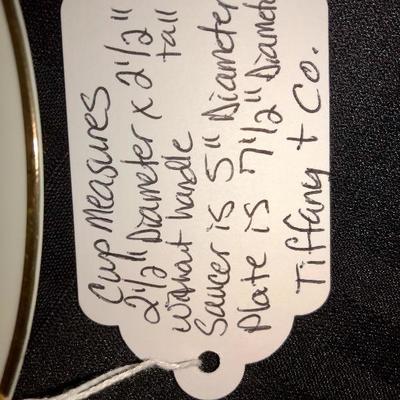 Cup Measures
2 1/2" Diameter x 2 1/2" tall
without handle
Saucer is 5" Diameter
Plate is 7 1/2" Diamete
Tiffany + Co.